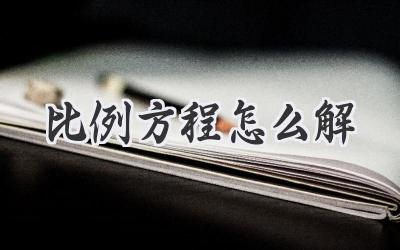 比例方程怎么解